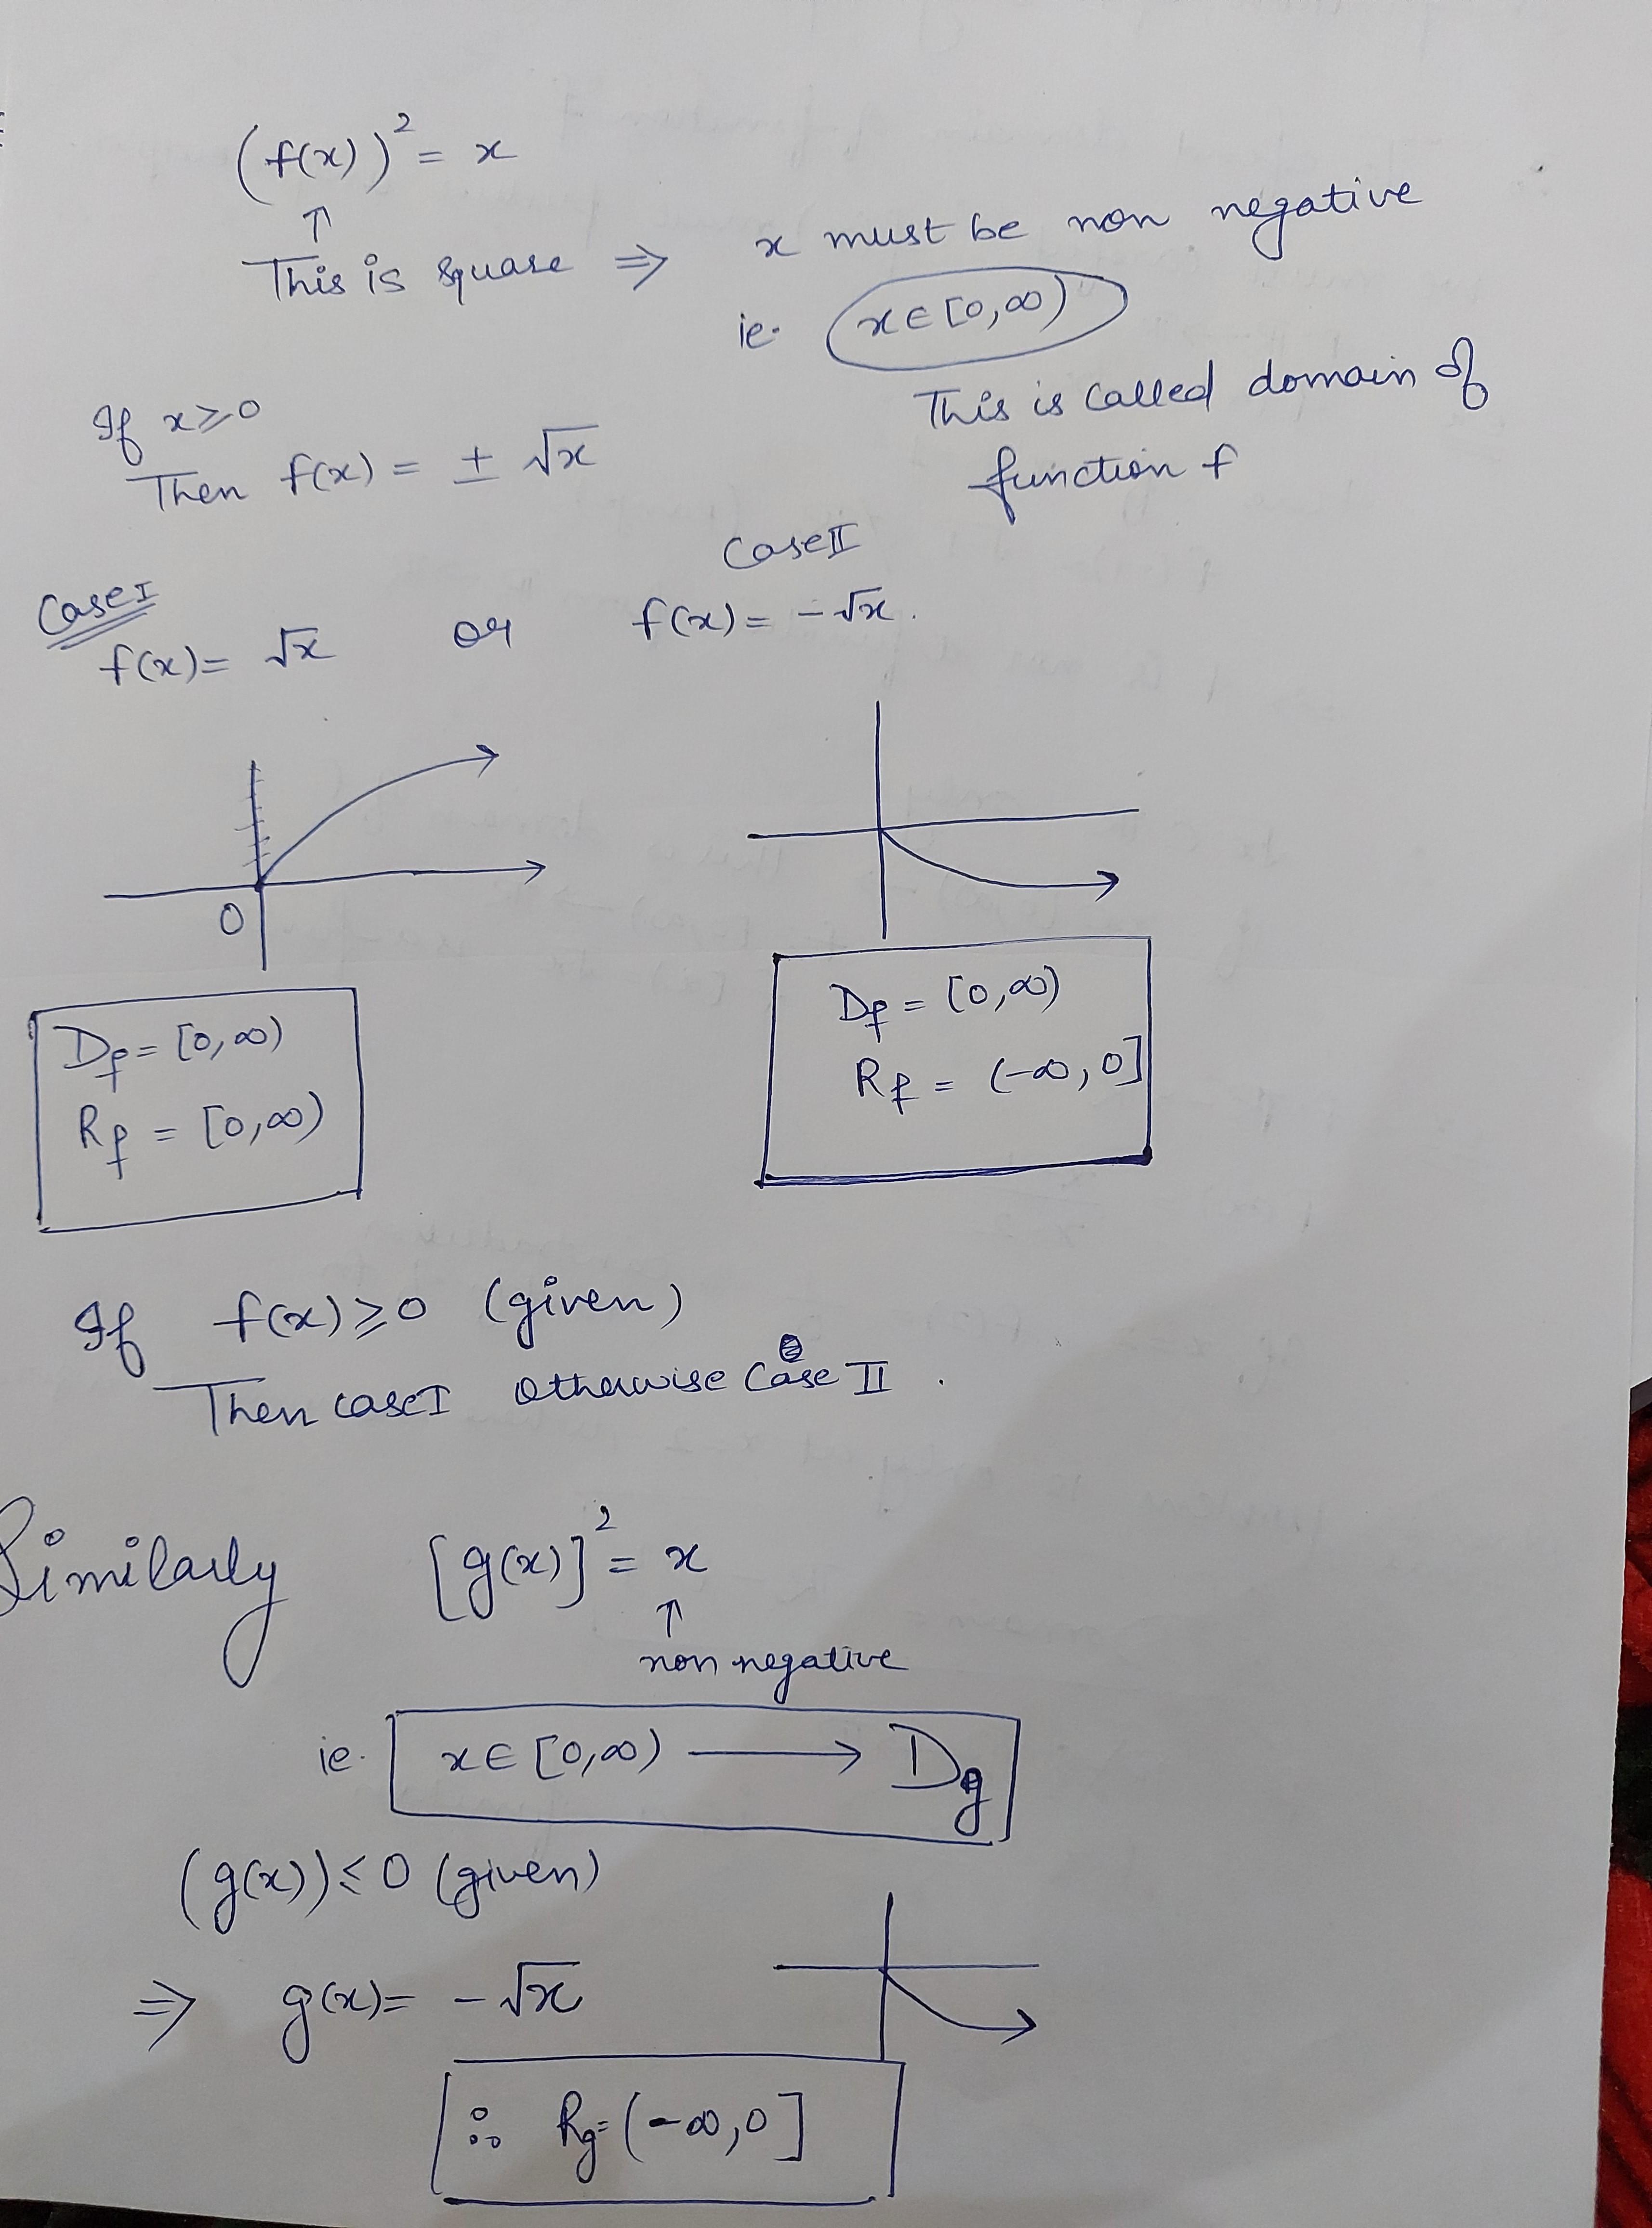 (f(x))² = x
↑
This is square ⇒ x must be non negative
ie. x ∈ [0,∞)
This is called domain of
function f
If x ≥ 0
Then f(x) = ± √x
Case I
f(x) = √x or
Case II
f(x) = - √x.
0
D_f = [0,∞)
R_f = [0,∞)
D_f = [0,∞)
R_f = (-∞,0]
If f(x) ≥ 0 (given)
Then case I otherwise Case II .
Similarly [g(x)]² = x
↑
non negative
ie. x ∈ [0,∞) ⟶ D_g
(g(x)) ≤ 0 (given)
⇒ g(x) = - √x
∴ R_g = (-∞,0]